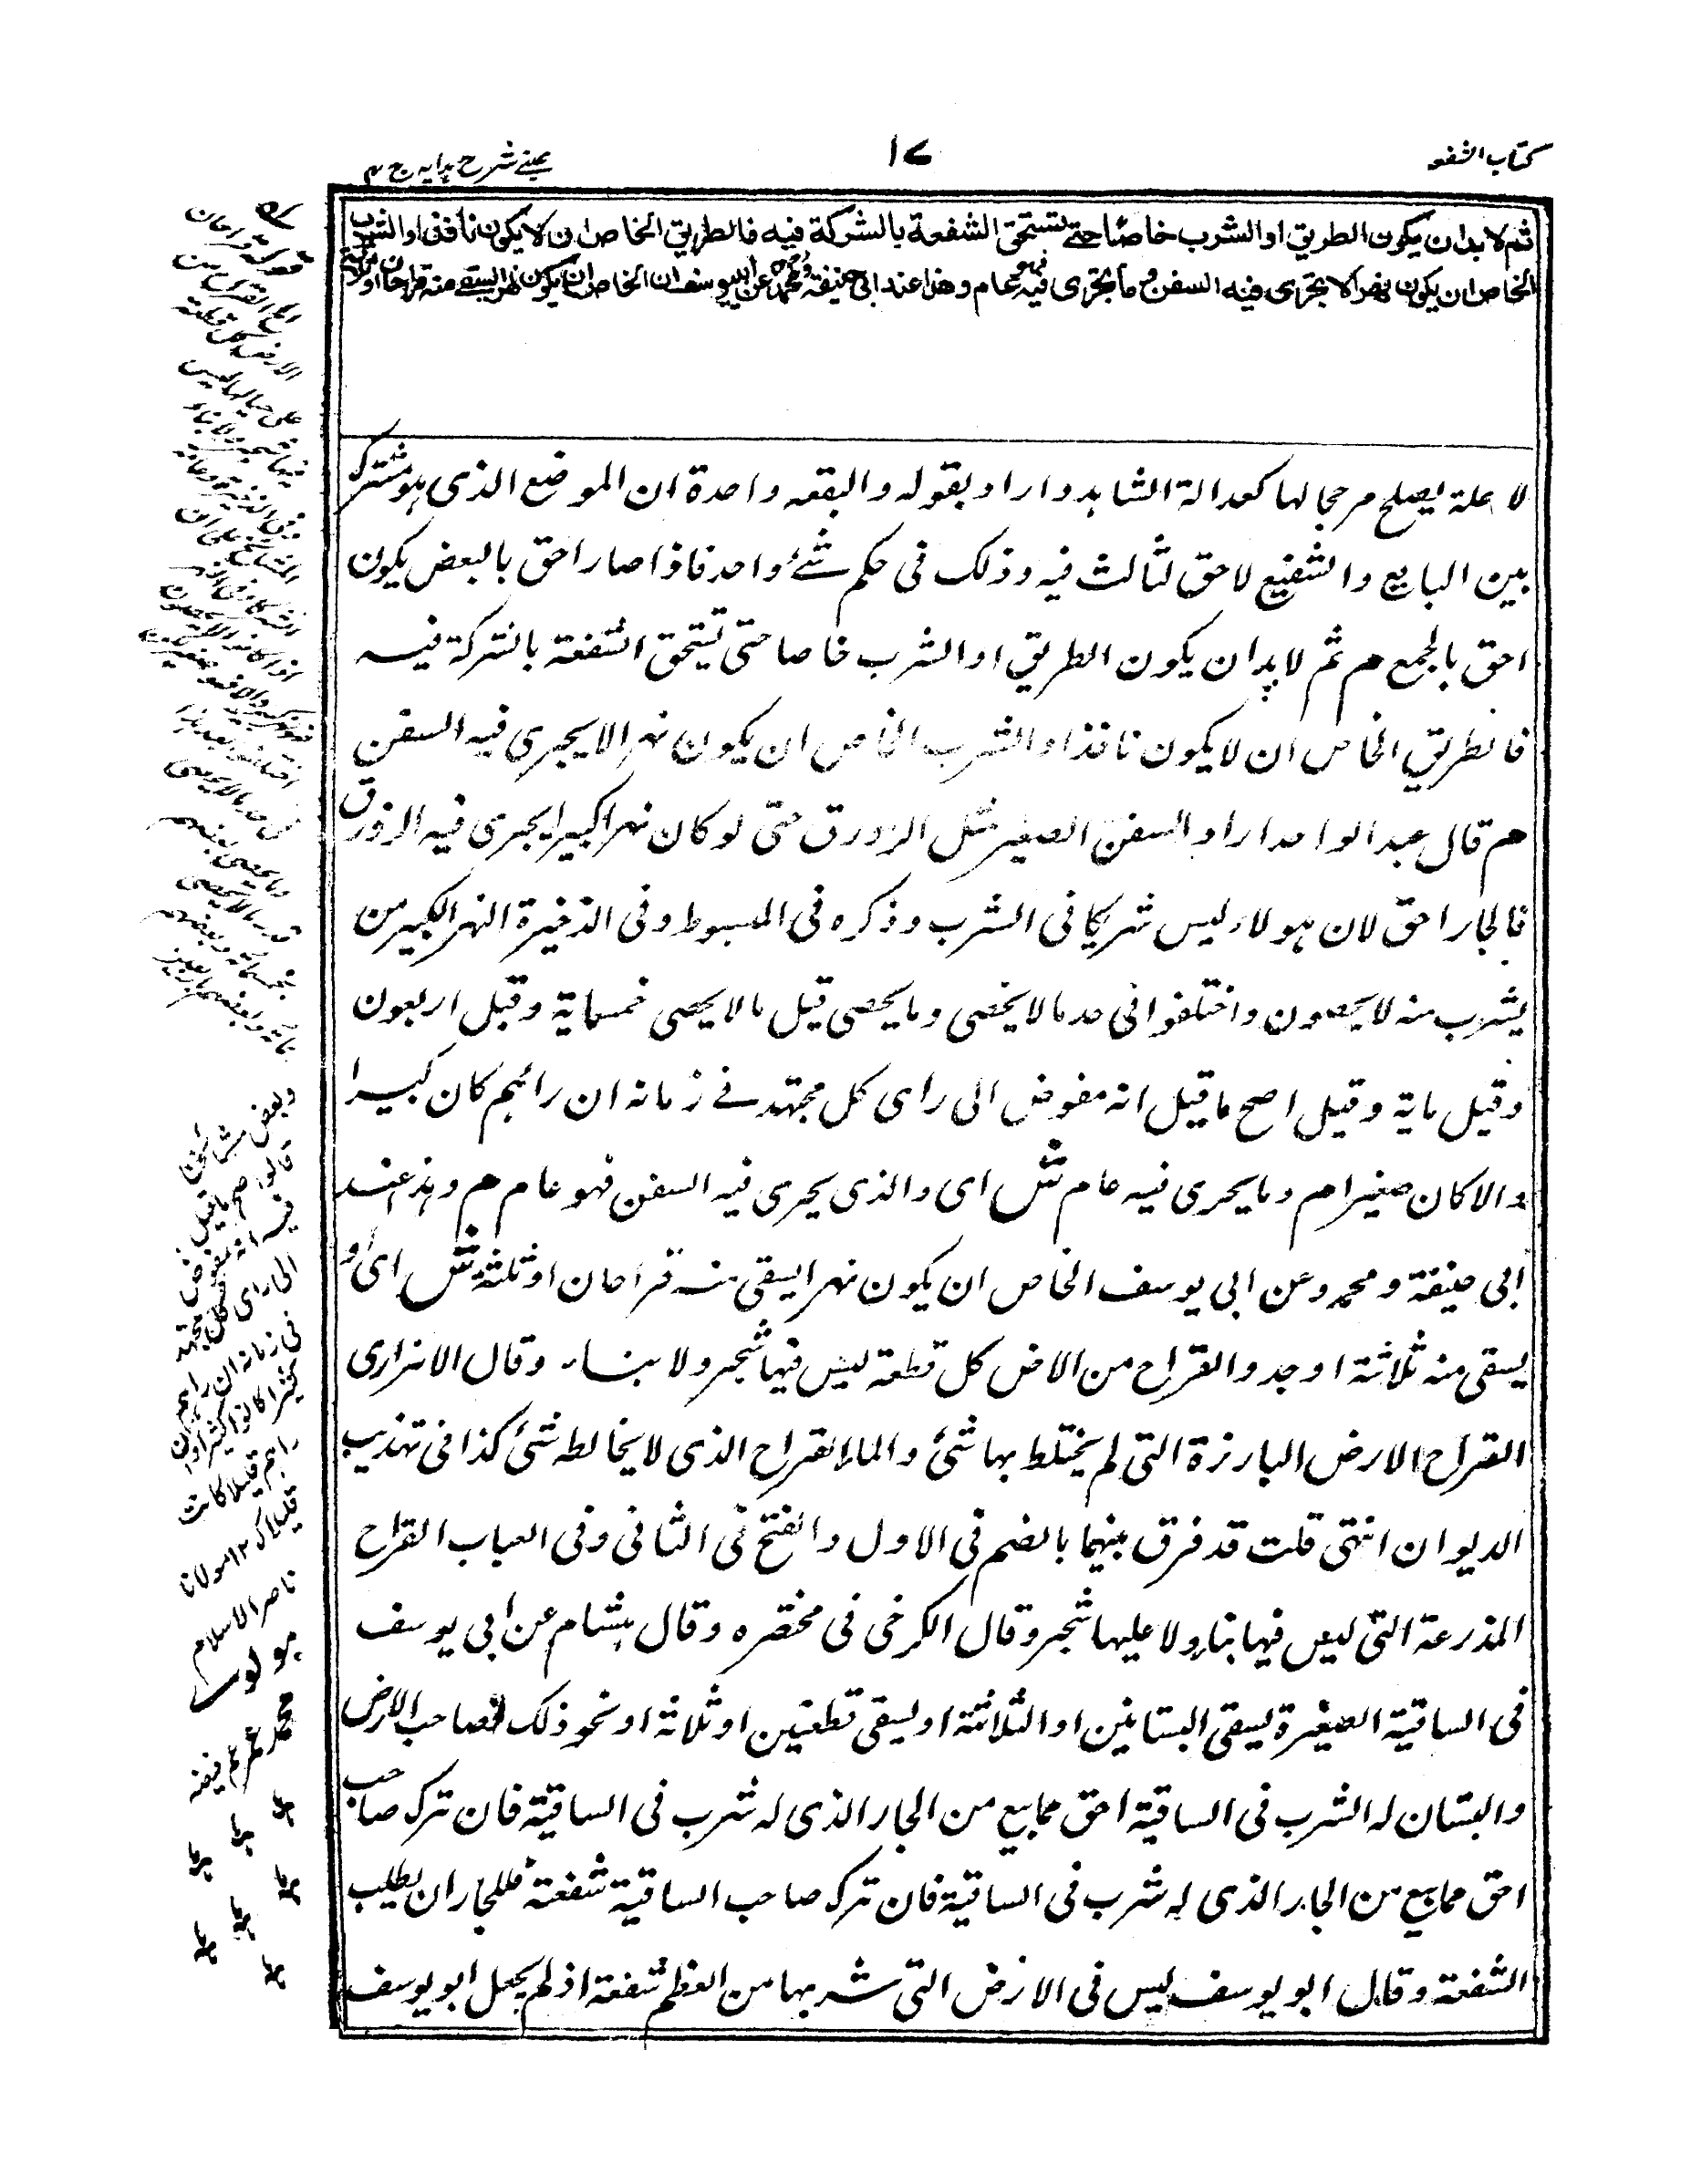 كتاب الشفعه
١٧
عینے شرح ہدایہ ج ٣
ثم لا بد ان يكون الطريق او الشرب خاصا حتے تستحق الشفعة بالشركة فيه فالطريق الخاص ان لا يكون نافذا والشرب
الخاص ان يكون نهرا لا تجرى فيه السفن و ما تجرى فيه فهو عام و هذا عند ابى حنيفة و محمد و عن ابيوسف ان الخاص ان يكون نهرا يسقے منه قراحان او ثلثة
لا علة يصلح مرجحا لها كعدالة الشاهد واراد بقوله والبقعه واحدة ان الموضع الذى هو مشترك
بين البايع والشفيع لا حق لثالث فيه وذلك فى حكم شئ واحد فاذا صار احق بالبعض يكون
احق بالجمع م ثم لا بد ان يكون الطريق او الشرب خاصا حتى تستحق الشفعة بالشركة فيه
فالطريق الخاص ان لا يكون نافذا والشرب الخاص ان يكون نهرا لا يجرى فيه السفن
م قال عبد الواحد اراد السفن الصغير مثل الزورق حتى لو كان نهرا كبيرا يجرى فيه الزورق
فالجار احق لان هولاء ليس شريكا فى الشرب وذكره فى المبسوط وفى الذخيرة النهر الكبير من
يشرب منه لا يحصون واختلفوا فى حد ما لا يحصى وما يحصى قيل ما لا يحصى خمسماية وقيل اربعون
وقيل ماية وقيل اصح ما قيل انه مفوض الى راى كل مجتهد فے زمانه ان رائهم كان كبيرا
والا كان صغيرا م وما يجرى فيه عام ش اى والذى يجرى فيه السفن فهو عام م وهذا عند
ابى حنيفة ومحمد وعن ابى يوسف الخاص ان يكون نهرا يسقى منه قراحان او ثلثة ش اى او
يسقى منه ثلاثة اوجد والقراح من الارض كل قطعة ليس فيها شجر ولا بناء وقال الاترازى
القراح الارض البارزة التى لم يختلط بها شئ والماء القراح الذى لا يخالطه شئ كذا فى تهذيب
الديوان انتهى قلت قد فرق بينهما بالضم فى الاول والفتح فى الثانى وفى العباب القراح
المذرعة التى ليس فيها بناء ولا عليها شجر وقال الكرخى فى مختصره وقال هشام عن ابى يوسف
فى الساقية الصغيرة يسقى البستانين او الثلاثة او يسقى قطعتين او ثلاثة او نحو ذلك فصاحب الارض
والبستان له الشرب فى الساقية احق مما بيع من الجار الذى له شرب فى الساقية فان ترك صاحب
احق مما بيع من الجار الذى له شرب فى الساقية فان ترك صاحب الساقية شفعة فللجار ان يطلب
الشفعة وقال ابو يوسف ليس فى الارض التى شربها من العظم شفعة اذ لم يجعل ابو يوسف
وبعض مشائخنا
قالوا اصح ما قيل
فيه انه مفوض
الى راى كل مجتهد
فى زمانه ان راهم
كثيرا كانوا كثيرا وان
راهم قليلا كانت
قليلا ك ١٢ مولانا
ناصر الاسلام
مولوى
محمد عمر عم فيضه